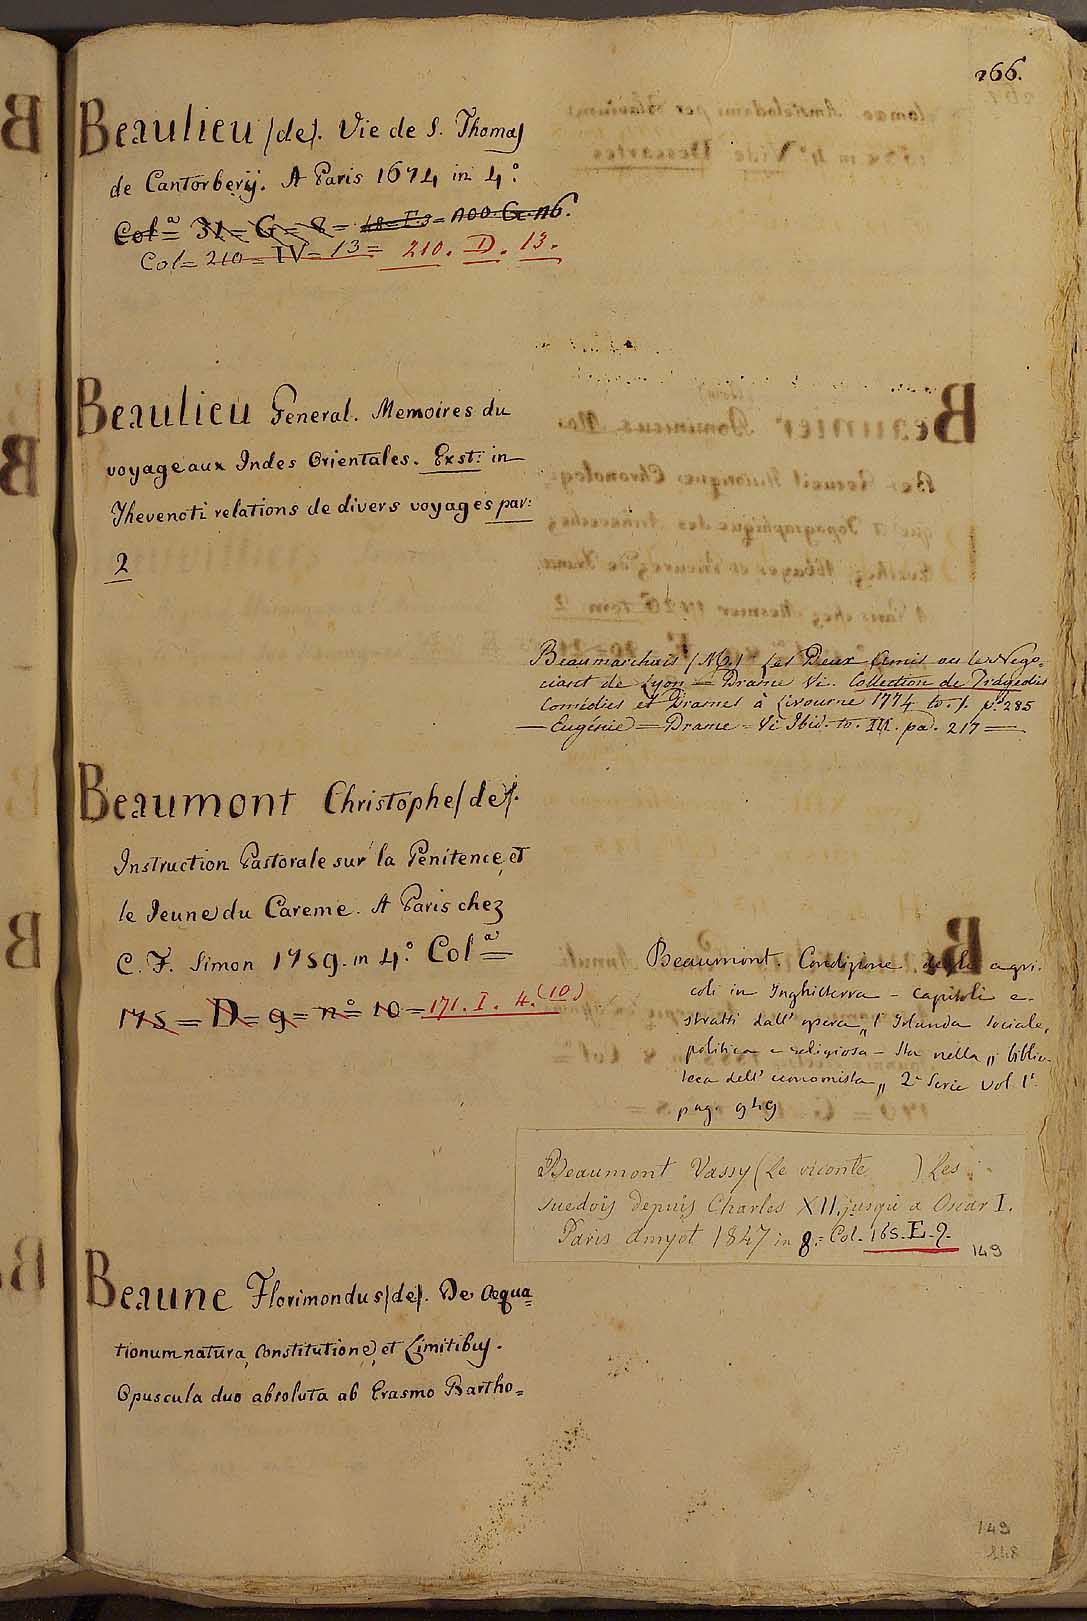 266.
Beaulieu (de). Vie de S. Thomas
de Cantorbery. A Paris 1674 in 4.°
Col.ª = 31 = G = 8 =
Col = 210 = IV = 13 = 210. D. 13.
Beaulieu General. Memoires du
voyage aux Indes Orientales. Exst: in
Thevenoti relations de divers voyages par:
2
Beaumarchais (M.) Les Deux Amis ou le Nego=
ciant de Lyon = Drame Vi. Collection de Tragedies
Comédies et Drames à Livourne 1774 to. 1. p. 285
— Eugénie = Drame = Vi Ibid. to. III. pa. 217 =
Beaumont Christophe (de).
Instruction Pastorale sur la Penitence, et
le Jeune du Careme. A Paris chez
C. F. Simon 1759. in 4.° Col.ª =
175 = D = 9 = n.° 10 = 171. I. 4. (10.)
Beaumont. Condizione degli agri-
coli in Inghilterra - Capitoli e-
stratti dall' opera „ l' Irlanda sociale,
politica e religiosa - Sta nella „ biblio-
teca dell' economista „ 2ª Serie vol 1°
pag. 949
Beaumont Vassy (Le viconte ) Les
suedois depuis Charles XII. jusqu a Oscar I.
Paris Amyot 1847 in 8.° Col. 165. E. 9.
149
Beaune Florimondus (de). De Æqua=
tionum natura, constitutione, et Limitibus.
Opuscula duo absoluta ab Erasmo Bartho=
149
148